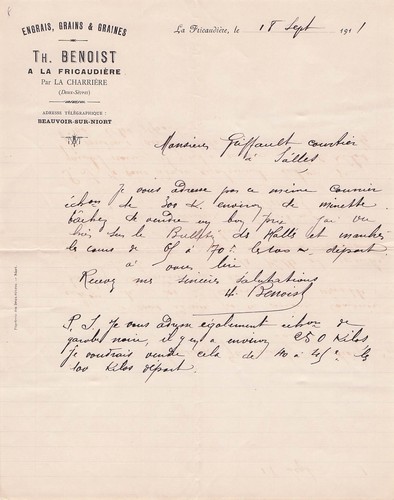 ENGRAIS, GRAINS & GRAINES
TH. BENOIST
A LA FRICAUDIÈRE
Par LA CHARRIÈRE
(Deux-Sèvres)
ADRESSE TÉLÉGRAPHIQUE :
BEAUVOIR-SUR-NIORT
La Fricaudière, le 18 Sept 1911
Monsieur Giffault courtier
à Salles
Je vous adresse par ce même courrier
échon de 300 K. environ de minette
tâchez de vendre un bon prix j'ai vu
hier sur le Bulletin des Halles et marchés
les cours de 65 à 70 f les 100 K départ
à vous lire
Recevez mes sincères salutations
Th. Benoist
P. S. Je vous adresse également échon de
garobe noire, il y en a environ 250 Kilos
je voudrais vendre cela de 40 à 45 f les
100 Kilos départ.